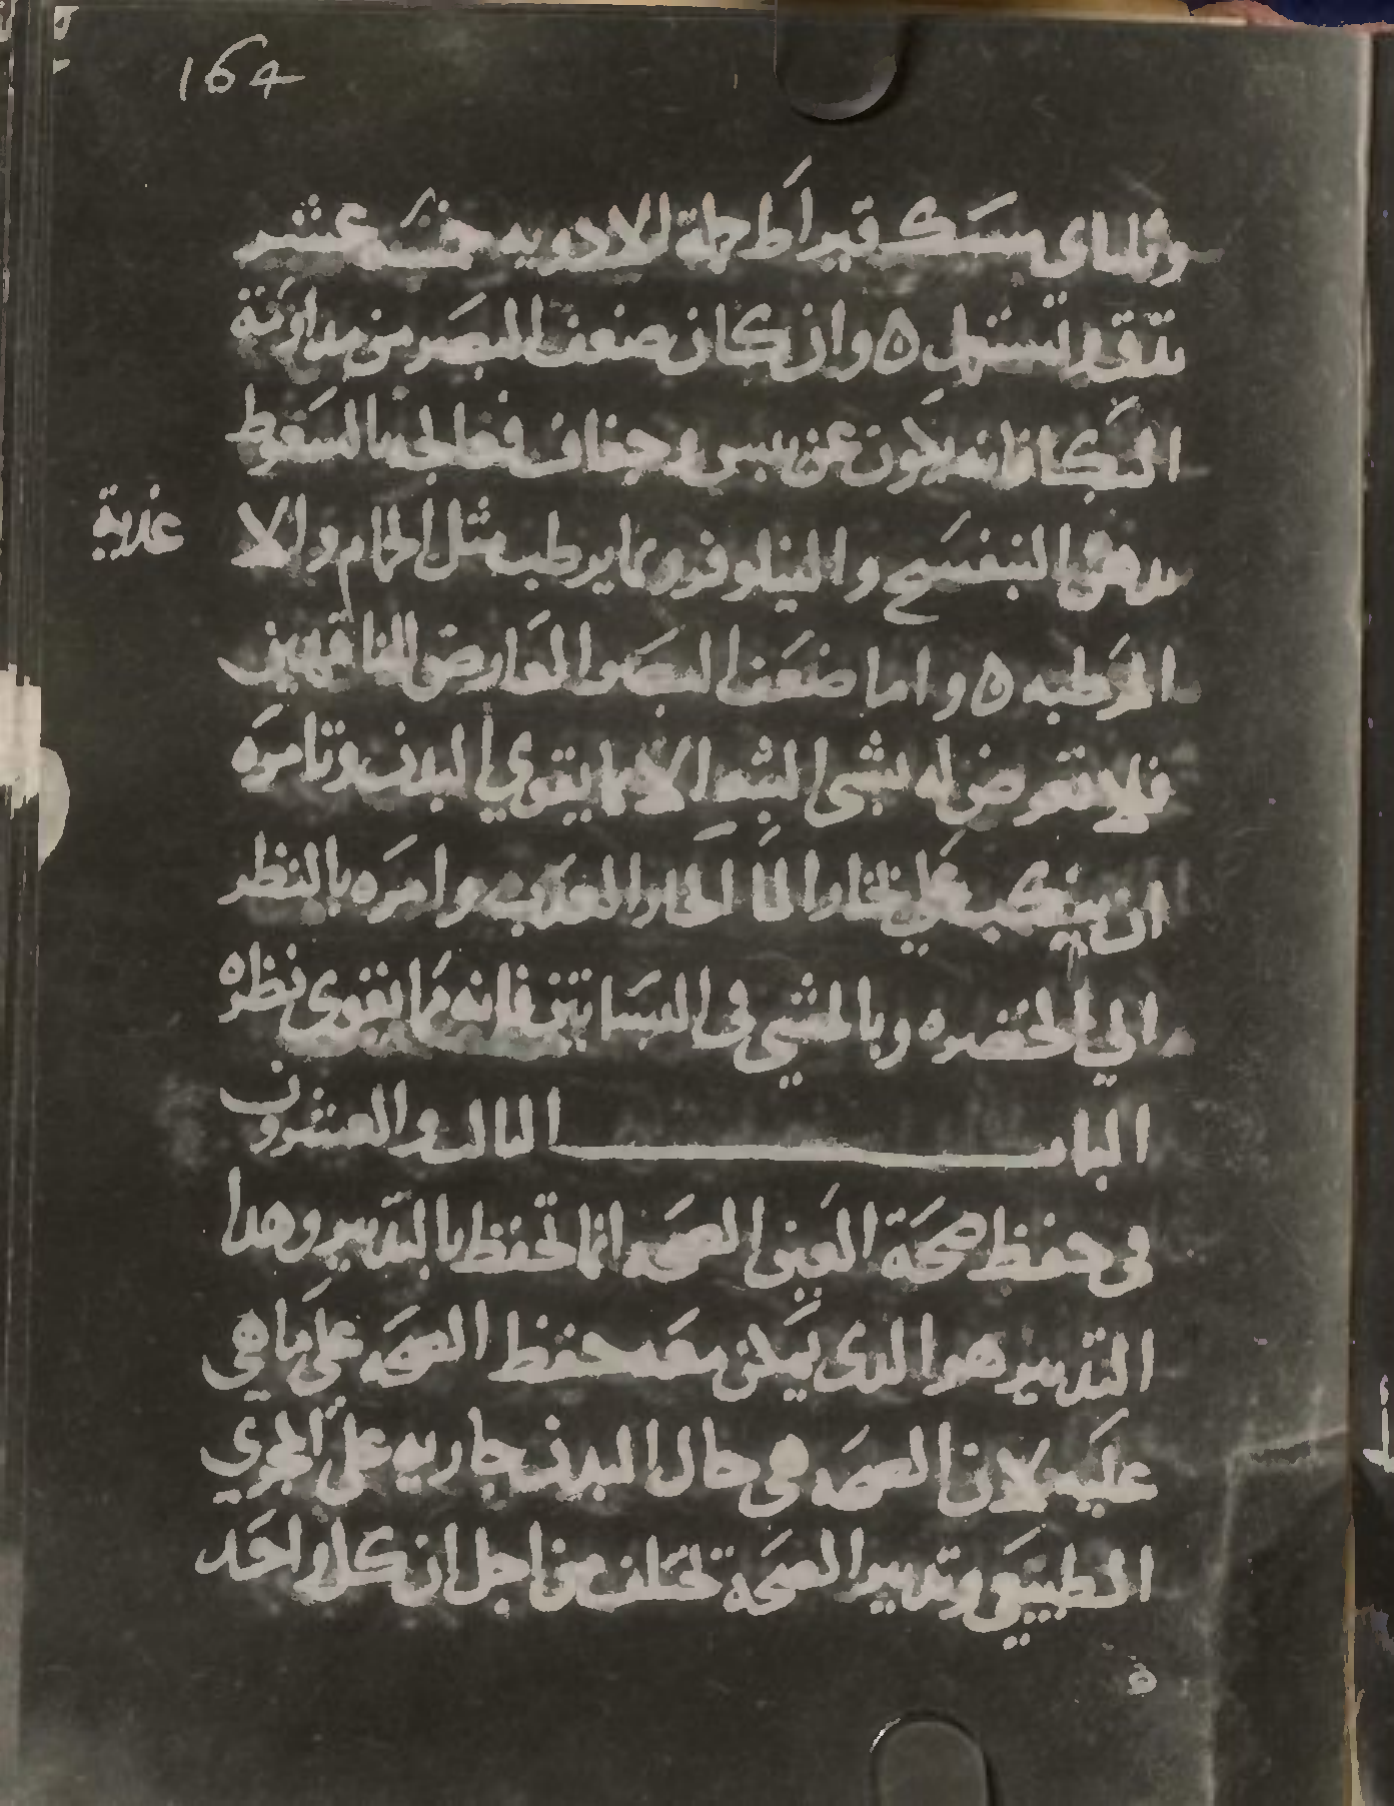 164
مسك قيراط جملة الادويه خمسه عشر
تدق وتستعمل ٥ وان كان ضعف البصر من مداومة
البكا فانه يكون عن يبس وجفاف فعالجه بالسعوط
بدهن البنفسج والنيلوفر وبما يرطب مثل الحمام والا
غذية
المرطبه ٥ واما ضعف البصر العارض للناقهين
فلا تتعرض له بشى الا بما يقوي البدن وتامره
ان ينكب على بخار الما الحار العذب وامره بالنظر
الي الخضره وبالمشي في البساتين فانه مما يقوى نظره
الباب الثالث والعشرون
في حفظ صحة العين الصحه انما تحفظ بالتدبير وهدا
التدبير هو الدى يمكن معه حفظ الصحه على ما هي
عليه لان الصحه هي حال البدن جاريه على المجري
الطبيعي وتدبير الصحة تختلف من اجل ان كل واحد